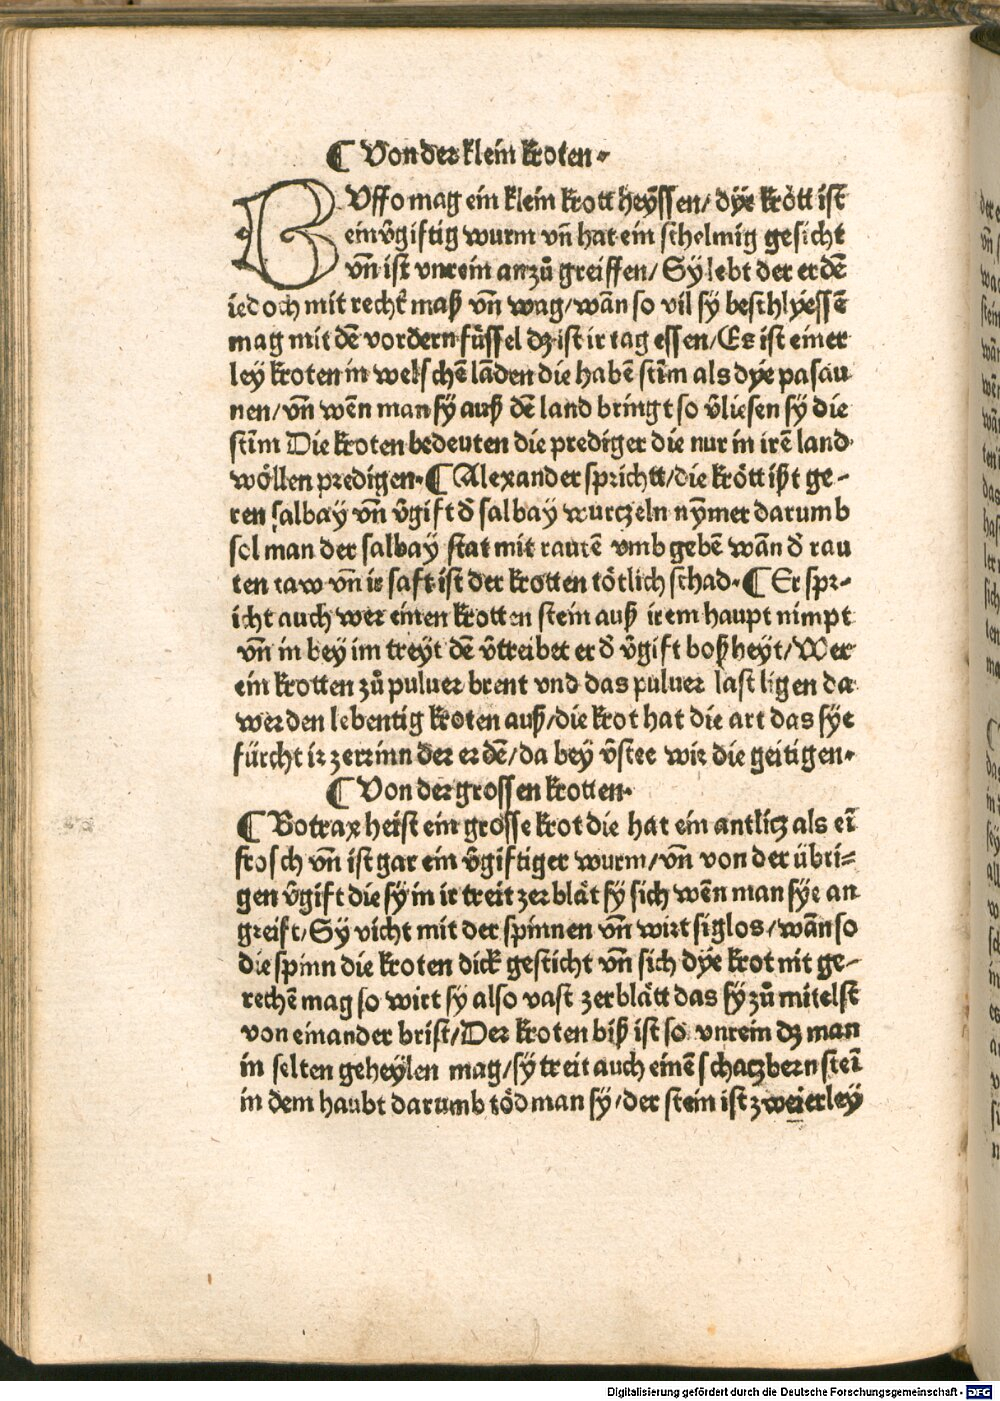 ¶ Von der klein kroten.
BVffo mag ein klein krott heyssen/ dÿe krött ist
ein v̄giftig wurm vn̄ hat ein schelmig gesicht
vn̄ ist vnrein anzů greiffen/ Sy lebt der erdē
iedoch mit rechter maß vn̄ wag/ wān so vil sÿ beschlÿessē
mag mit dē vordern füssel dz ist ir tag essen/ Es ist einer
leÿ kroten in welschē lāden die habē stim als dÿe pasau
nen/ vn̄ wēn man sÿ auß dē land bringt so v̄liesen sÿ die
stim Die kroten bedeuten die prediger die nur in irē land
wöllen predigen. ¶ Alexander sprichtt/ die krött ißt ge-
ren salbaÿ vn̄ v̄gift d̄ salbaÿ wurczeln nÿmer darumb
sol man der salbaÿ stat mit rautē vmb gebē wān d̄ rau
ten taw vn̄ ir saft ist der krotten tötlich schad. ¶ Er spr-
icht auch wer einen krotten stein auß irem haupt nimpt
vn̄ in bey im treyt dē v̄treibet er d̄ v̄gift boßheyt/ Wer
ein krotten zů puluer brent vnd das puluer last ligen da
werden lebentig kroten auß/ die krot hat die art das sÿe
fürcht ir zerrinn der erdē/ da beÿ v̄stee wir die geitigen.
¶ Von der grossen krotten.
¶ Botrax heist ein grosse krot die hat ein antlicz als eī
frosch vn̄ ist gar ein v̄giftiger wurm/ vn̄ von der übri-
gen v̄gift die sÿ in ir treit zerblät sÿ sich wēn man sÿe an
greift/ Sy vicht mit der spinnen vn̄ wirt siglos/ wān so
die spinn die kroten dick gesticht vn̄ sich dÿe krot nit ge-
rechē mag so wirt sÿ also vast zerblätt das sÿ zů mitelst
von einander brist/ Der kroten biß ist so vnrein dz man
in selten geheylen mag/ sÿ treit auch einē schaczbern steī
in dem haubt darumb töd man sÿ/ der stein ist zweierleÿ
Digitalisierung gefördert durch die Deutsche Forschungsgemeinschaft - DFG